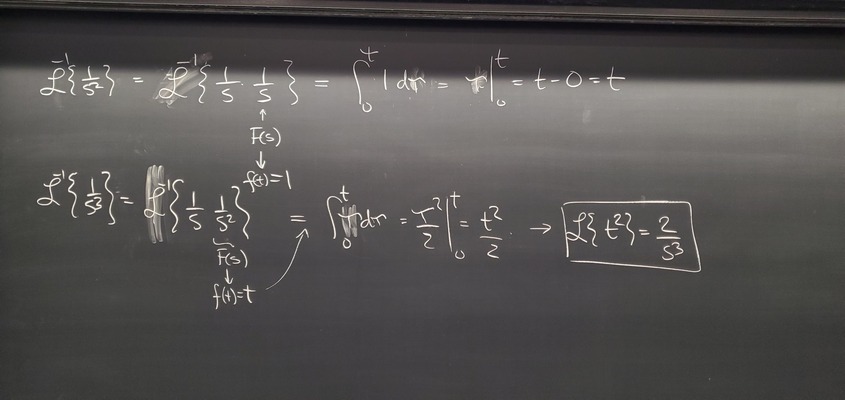 ℒ⁻¹{1/s²} = ℒ⁻¹{1/s · 1/s} = ∫₀ᵗ 1 dτ = τ|₀ᵗ = t - 0 = t
↑
F(s)
↓
f(t)=1
ℒ⁻¹{1/s³} = ℒ⁻¹{1/s 1/s²} = ∫₀ᵗ τ dτ = τ²/2|₀ᵗ = t²/2. → ℒ{t²} = 2/s³
F(s)
↓
f(t)=t